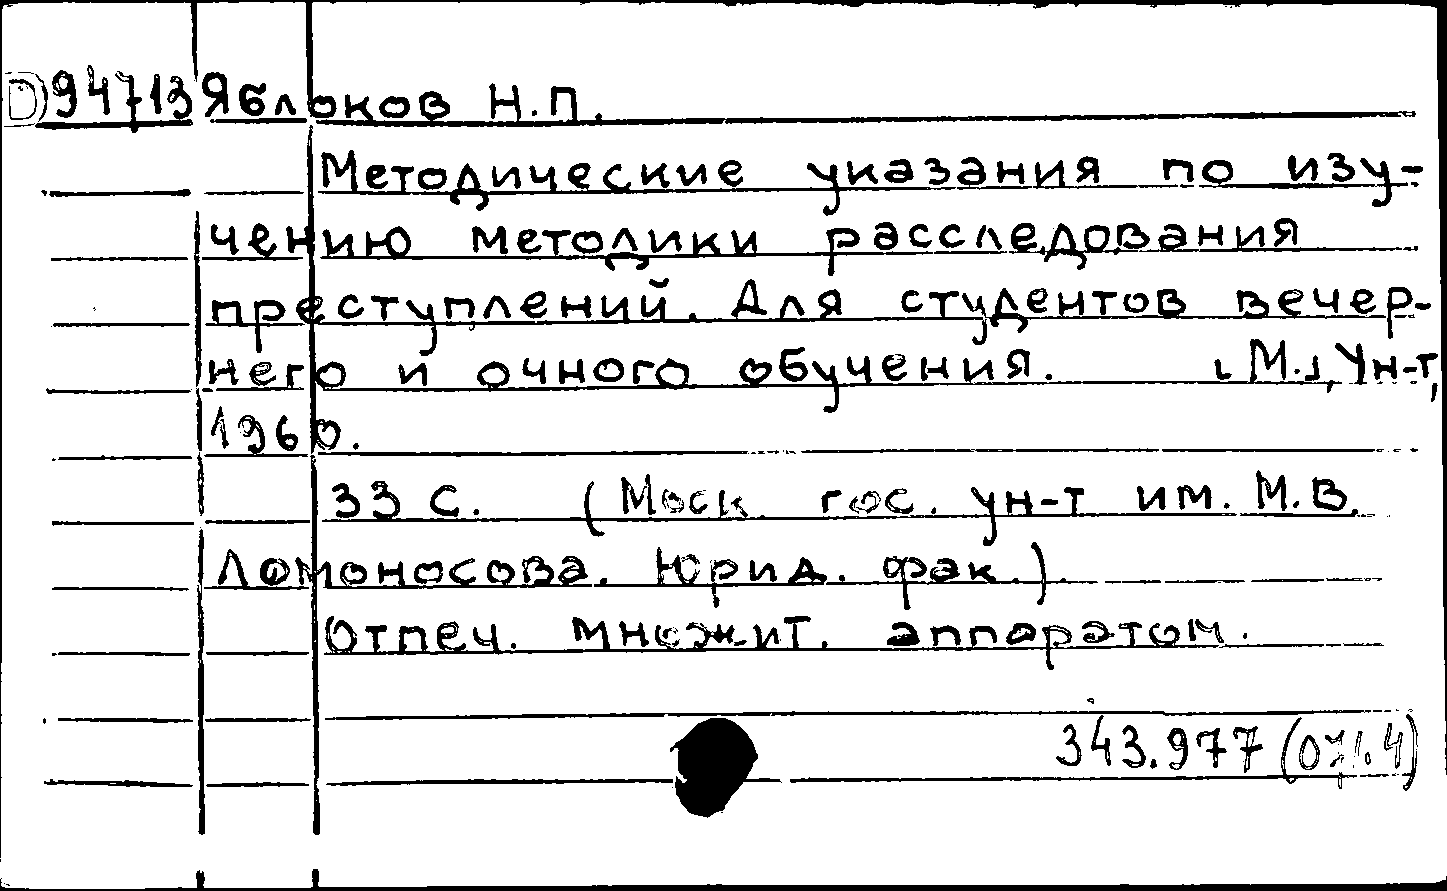 D 94713 Яблоков Н.П.
Методические указания по изу-
чению методики расследования
преступлений. Для студентов вечер-
него и очного обучения. [М.], Ун-т,
1960.
33 с. (Моск. гос. ун-т им. М.В.
Ломоносова. Юрид. фак.).
Отпеч. множит. аппаратом.
343.977 (071.4)